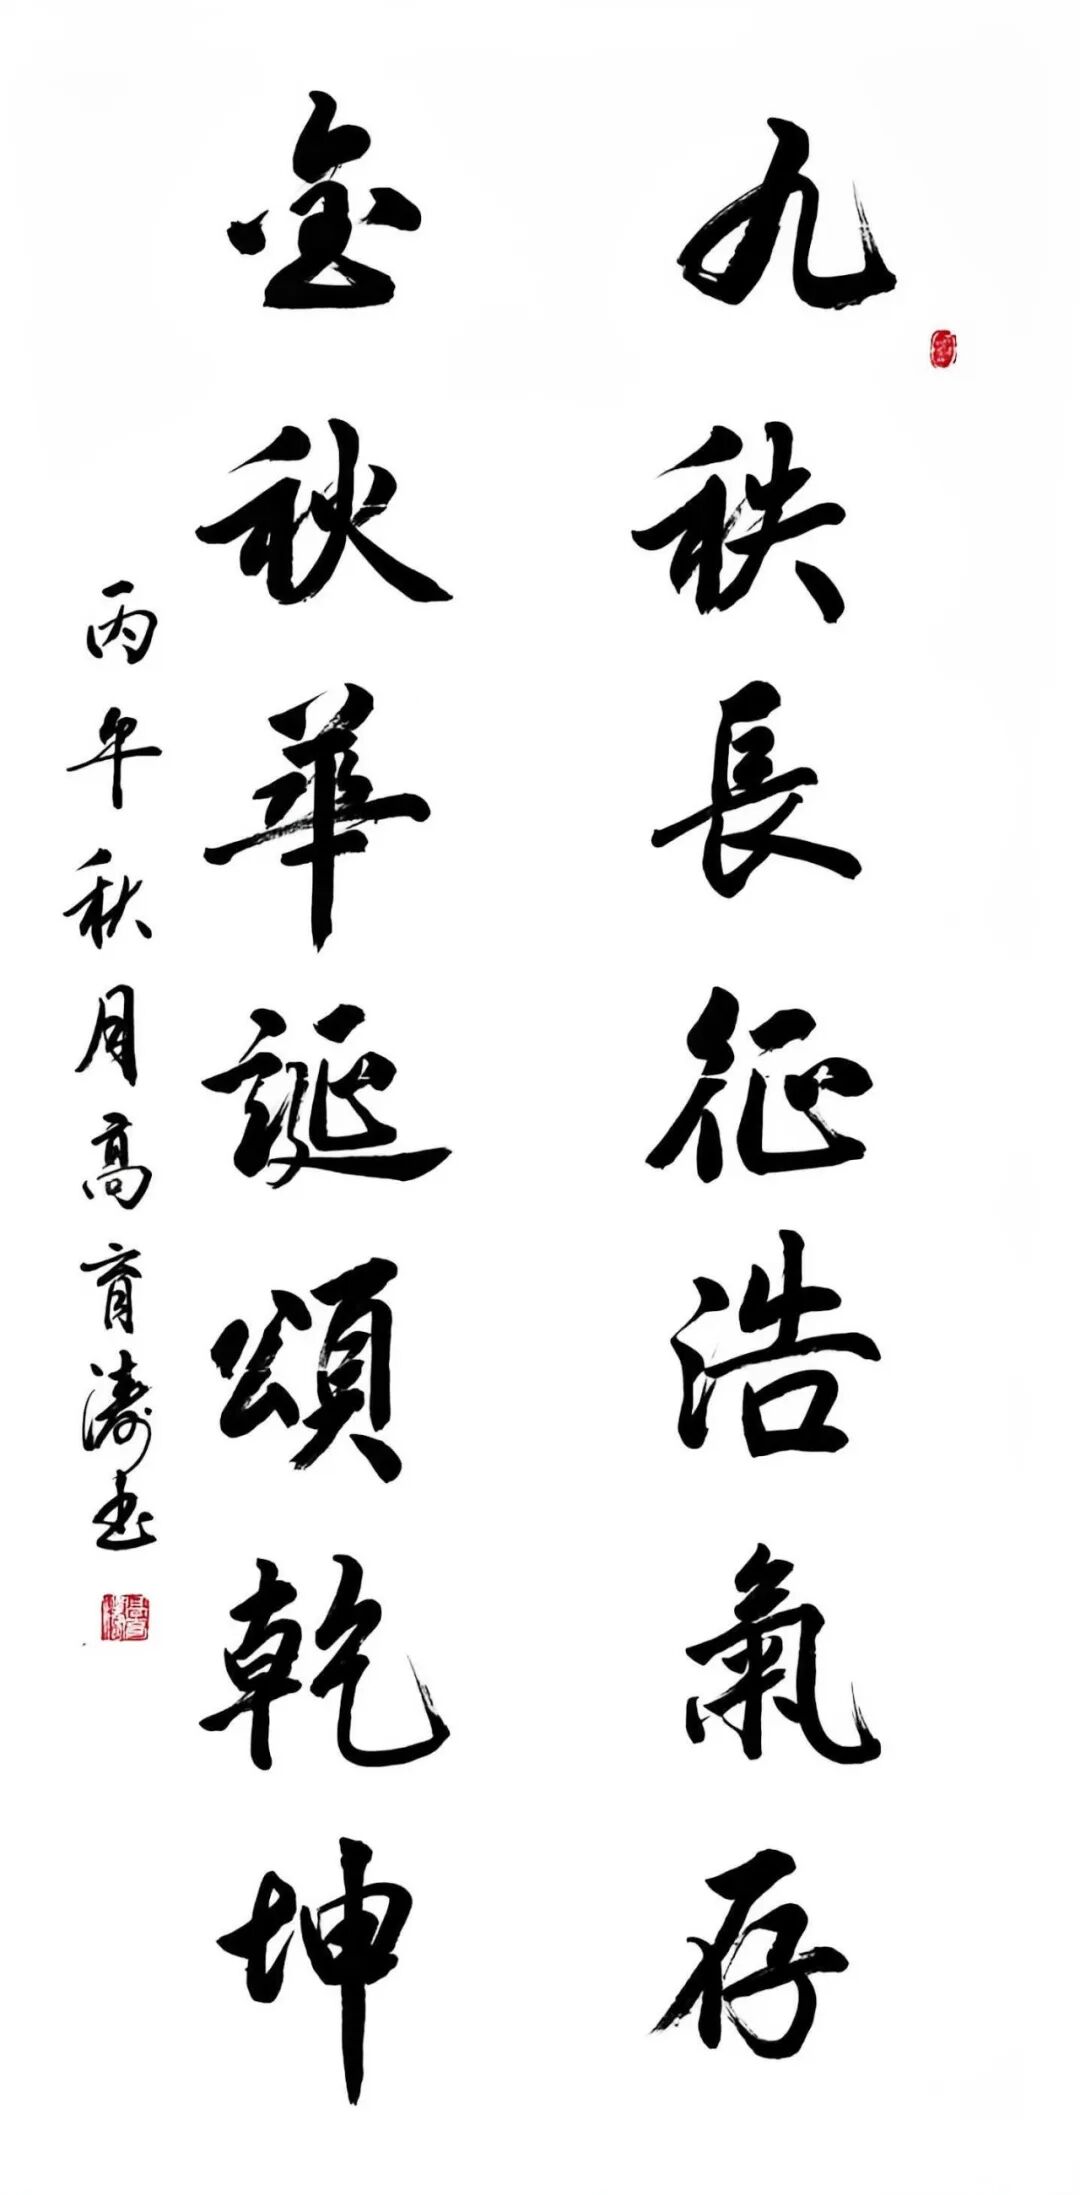 九秩長征浩氣存
金秋華誕頌乾坤
丙午秋月高育濤书